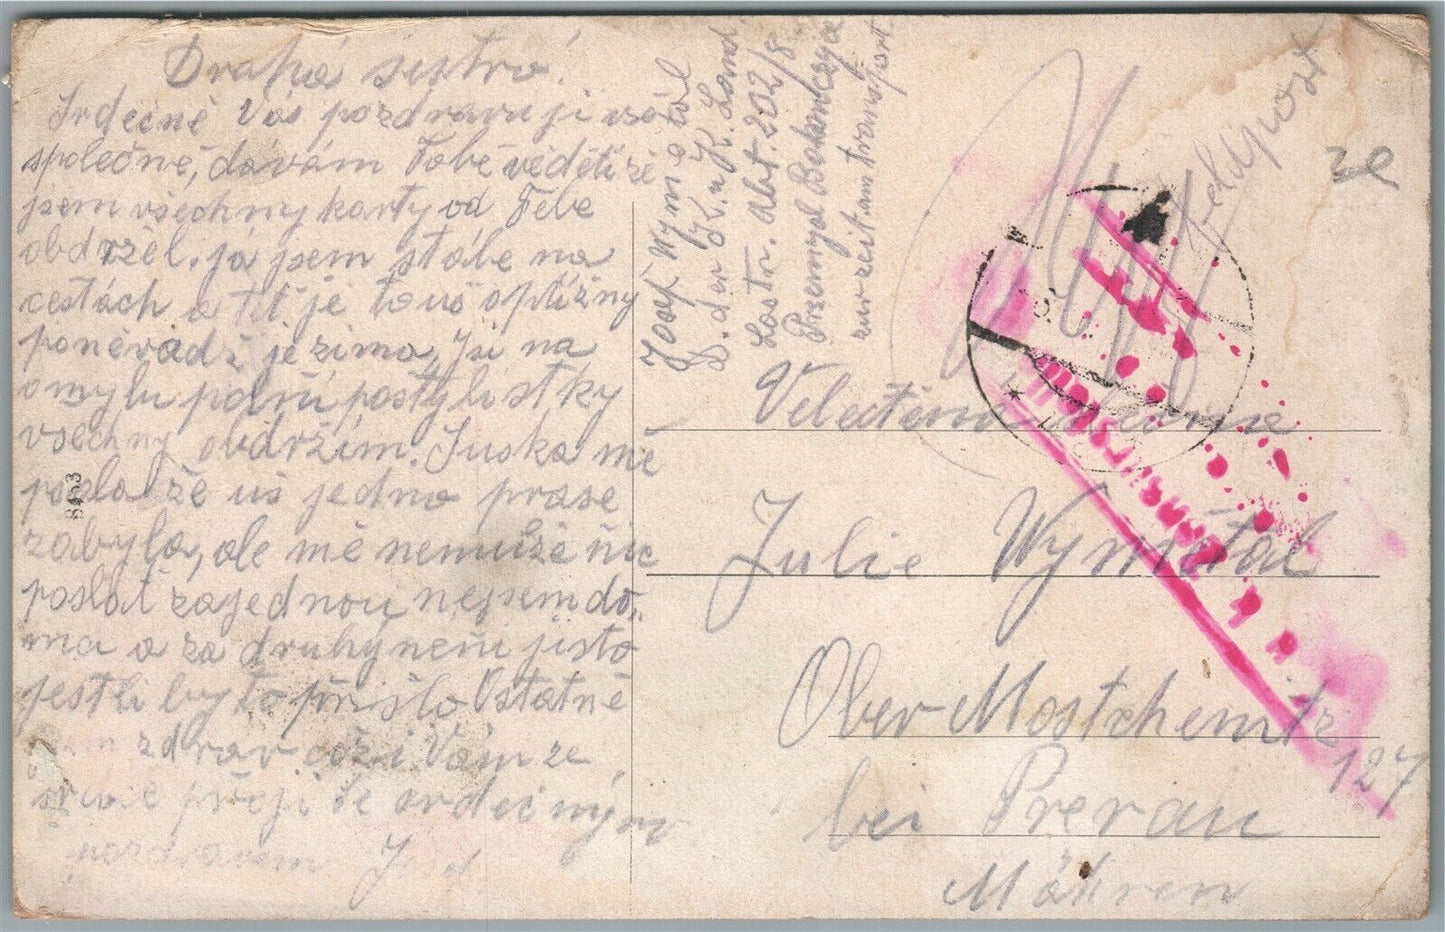 Drahá sestro!
Srdečně Vás pozdravuji vás
společně, dávám Tobě věděti že
jsem všechny karty od Tebe
obdržel. já jsem stále na
cestách a teť je to uš optížny
poněvadž je zima, Jsi na
omylu polní postý listky
všechny ovdržím. Juska mě
poslala že uš jedno prase
zabyla, ale mě nemuže nic
poslat zajednou nejsem do,
ma a za druhý neni jisto
jestli by to přišlo Ostatně
jsem zdrav což i Vám ze
srdce přeji se srdečným
pozdravem Josef.
Josef Wymětal
K. u K. Land
Lostr. Abt. 202/8
Przemysl Bakonczyce
zur zeit am transport.
Feldpost
Velectěna
Julie Wymětal
Ober Mostchenitz
127
bei Prerau
Mähren
8463